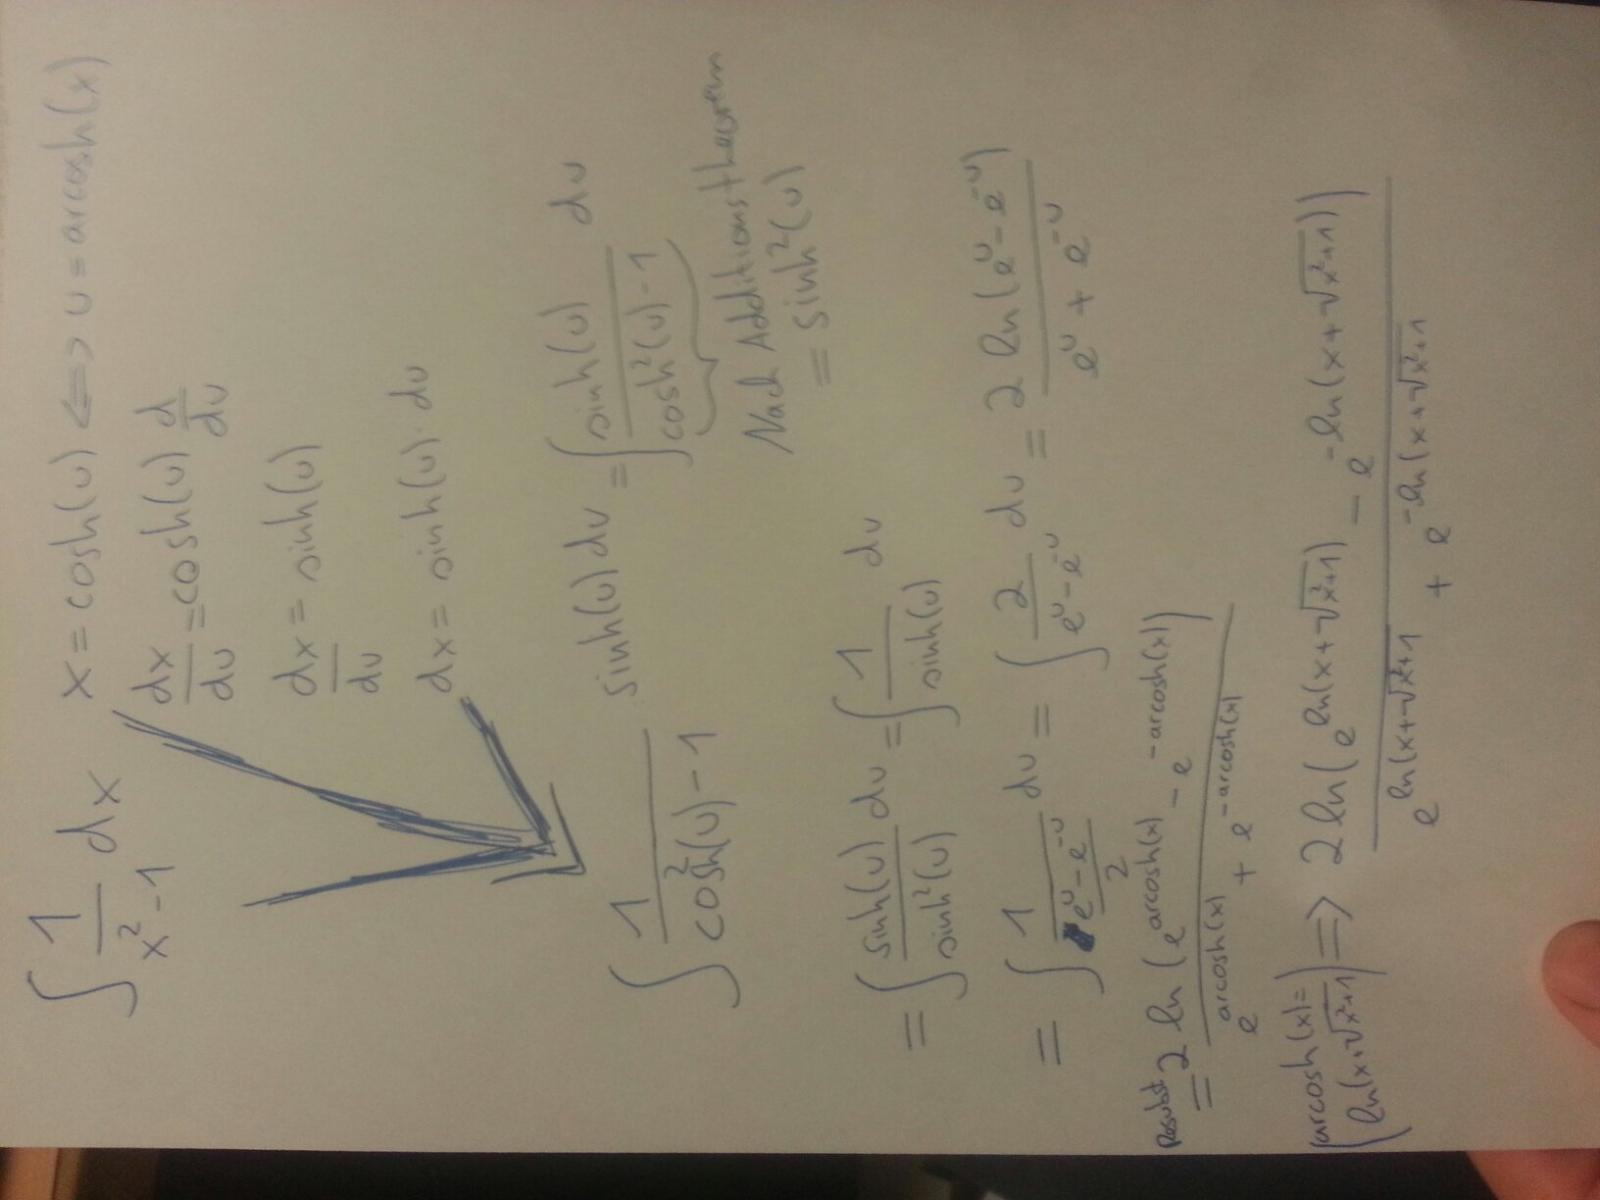 ∫ 1/(x²-1) dx    x = cosh(u) <=> u = arcosh(x)
dx/du = cosh(u) d/du
dx/du = sinh(u)
dx = sinh(u) · du
∫ 1/(cosh²(u)-1) · sinh(u) du = ∫ sinh(u)/(cosh²(u)-1) du
Nach Additionstheorem
= sinh²(u)
= ∫ sinh(u)/sinh²(u) du = ∫ 1/sinh(u) du
= ∫ 1/((e^u - e^-u)/2) du = ∫ 2/(e^u - e^-u) du = 2 ln(e^u - e^-u)/(e^u + e^-u)
Resubst
= 2 ln(e^arcosh(x) - e^-arcosh(x))/(e^arcosh(x) + e^-arcosh(x))
(arcosh(x) = ln(x+√(x²+1))) => 2 ln(e^ln(x+√(x²+1)) - e^-ln(x+√(x²+1)))/(e^ln(x+√(x²+1) + e^-ln(x+√(x²+1))